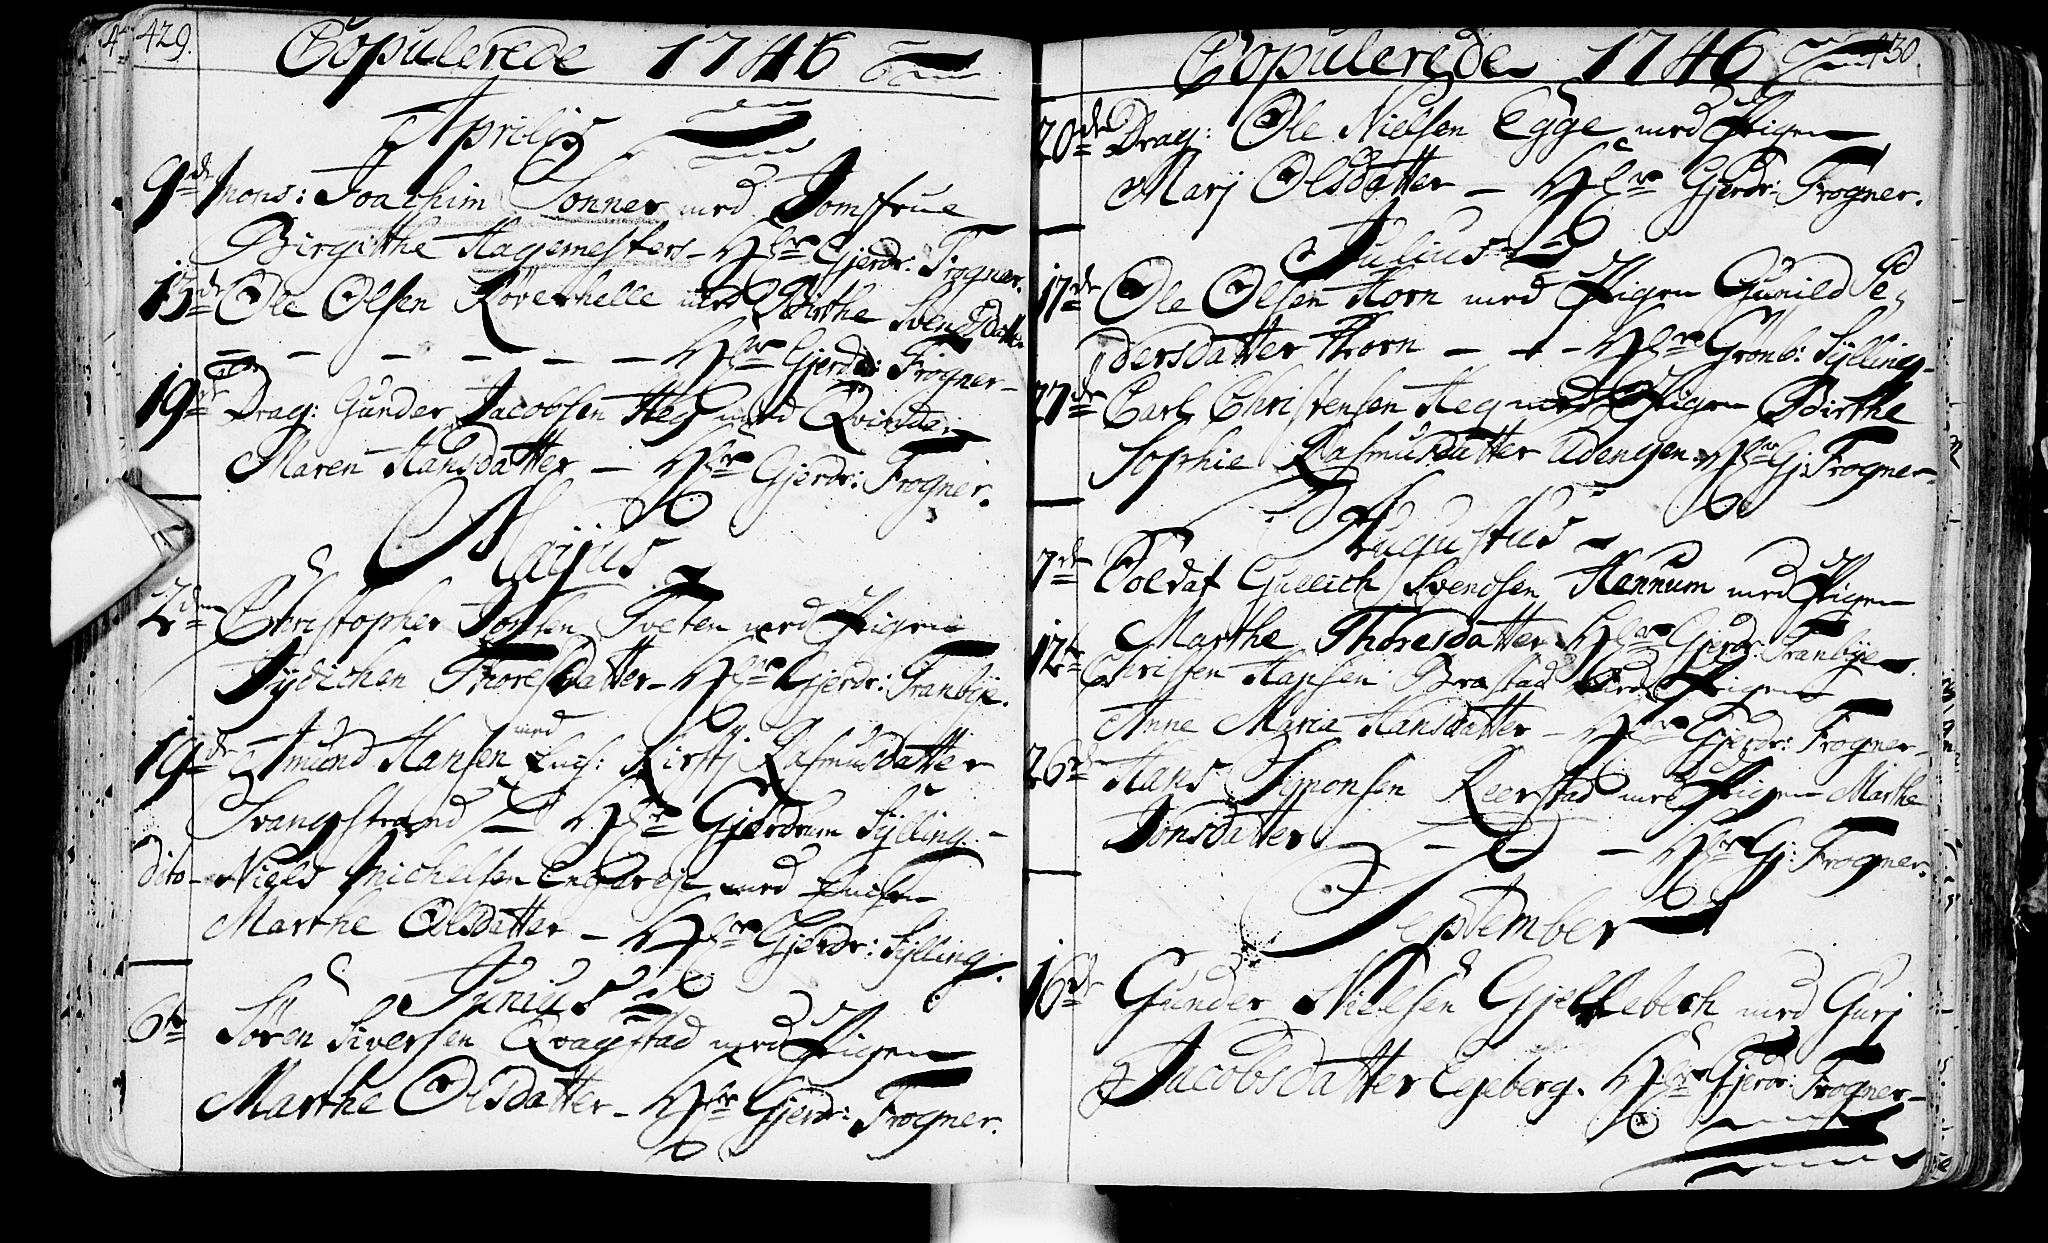 429.
Copulerede 1746
Aprilis
9de Mons: Joachim Sonner med Jomfrue
Birgithe Hagemesters - Hr Gjerdr: Frogner.
15de Ole Olsen med Birthe Svendsdatter
- - - - - - Hr Gjerdr: Frogner -
19de Drag: Gunder Jacobsen Heg med Qvinden
Maren Hansdatter - Hr Gjerdr: Frogner.
Majus
2den Christopher Tveten med Pigen
Thoresdatter - Hr Gjerdr: Tranbye.
19de Amund Hansen med Ench: Kirstj Rasmusdatter
Svangstrand - Hr Gjerdrum Sylling. -
dito - Niels Michelsen med Enchen
Marthe Olsdatter - Hr Gjerdr: Sylling.
Junius
6te Søren Siversen Qvagstad med Pigen
Marthe Olsdatter - Hr Gjerdr: Frogner.
430.
Copulerede 1746
20de Drag: Ole Nielsen Egge med Pigen
Marj Olsdatter - Hr Gjerdr: Frogner.
Julius
17de Ole Olsen Horn med Pigen Gunild Pe-
dersdatter Horn - - - Hr Grønb: Sylling -
27de Carl Christensen Heg med Pigen Birthe
Sophie Rasmusdatter Udengen. Hr Gj: Frogner -
Augustus -
7de Soldat Gullich Svendsen Hennum med Pigen
Marthe Thoresdatter - Hr Gjerdr: Tranbye.
12te Christen Hansen Brastad med Pigen
Anne Maria Hansdatter - Hr Gjerdr: Frogner -
26de Hans Symonsen Reerstad med Pigen Marthe
Jonsdatter - - - Hr Gj: Frogner.
September
16de Gunder Nielsen Gjellebech med Gurj
Jacobsdatter Egeberg. Hr Gjerdr: Frogner -